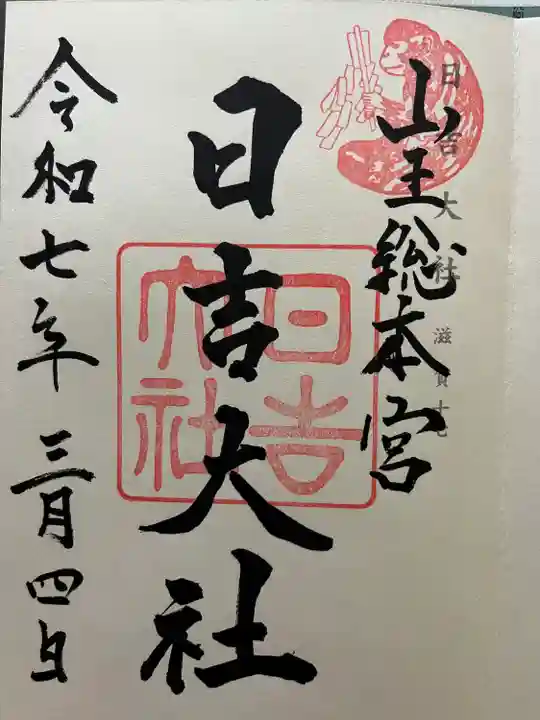 山王総本宮
日吉大社 滋賀十七
日吉大社
日吉大社
令和七年三月四日